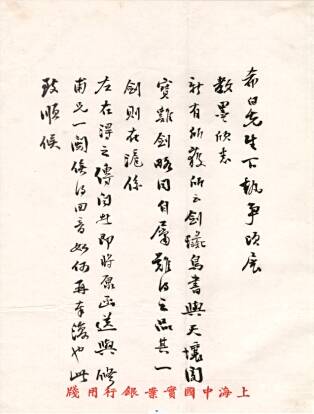 希白先生下執事頃展
教墨欣悉
新有所獲所云劍鐵鳥書與天壤閣
寶雞劍略同自屬難得之品其一
劍則在滬係
左在得之傳聞此即將原函送與修
甫兄一閱俟得回音如何再奉復也此
致順候
上海中國實業銀行用牋